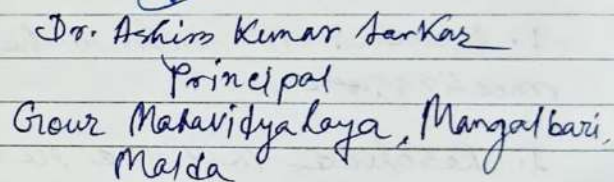 Dr. Ashim Kumar Sarkar
Principal
Gour Mahavidyalaya, Mangalbari,
Malda